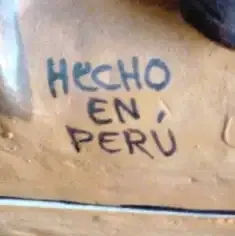 HeCHO
EN
PERÚ